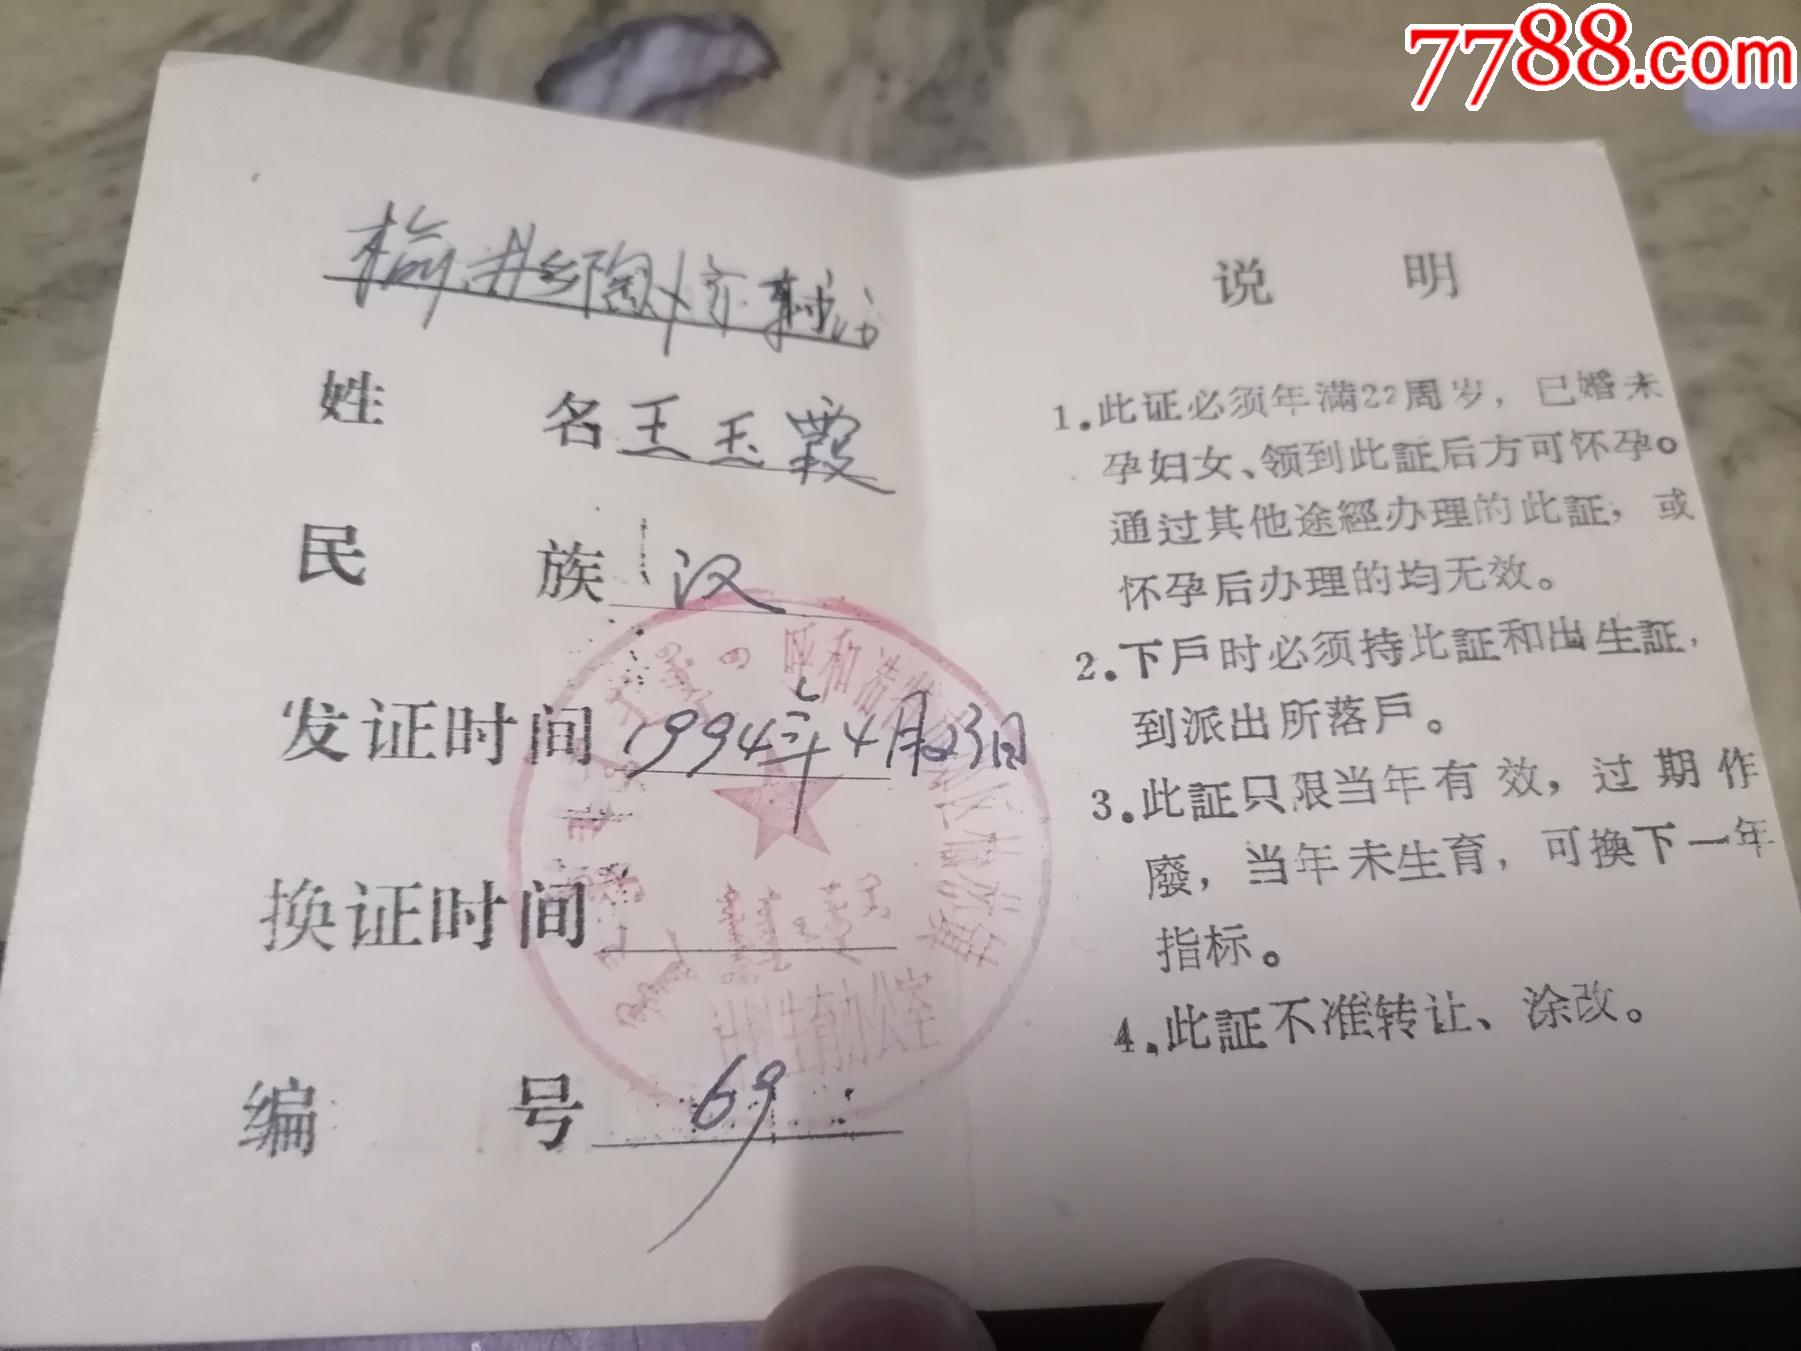 7788.com
姓 名 王玉霞
民 族 汉
发证时间 1994年4月23日
换证时间
编 号 69
呼和浩特
计划生育办公室
说 明
1.此证必须年满22周岁，已婚未
孕妇女、领到此証后方可怀孕。
通过其他途經办理的此証，或
怀孕后办理的均无效。
2.下戶时必须持此証和出生証，
到派出所落戶。
3.此証只限当年有效，过期作
廢，当年未生育，可换下一年
指标。
4.此証不准转让、涂改。